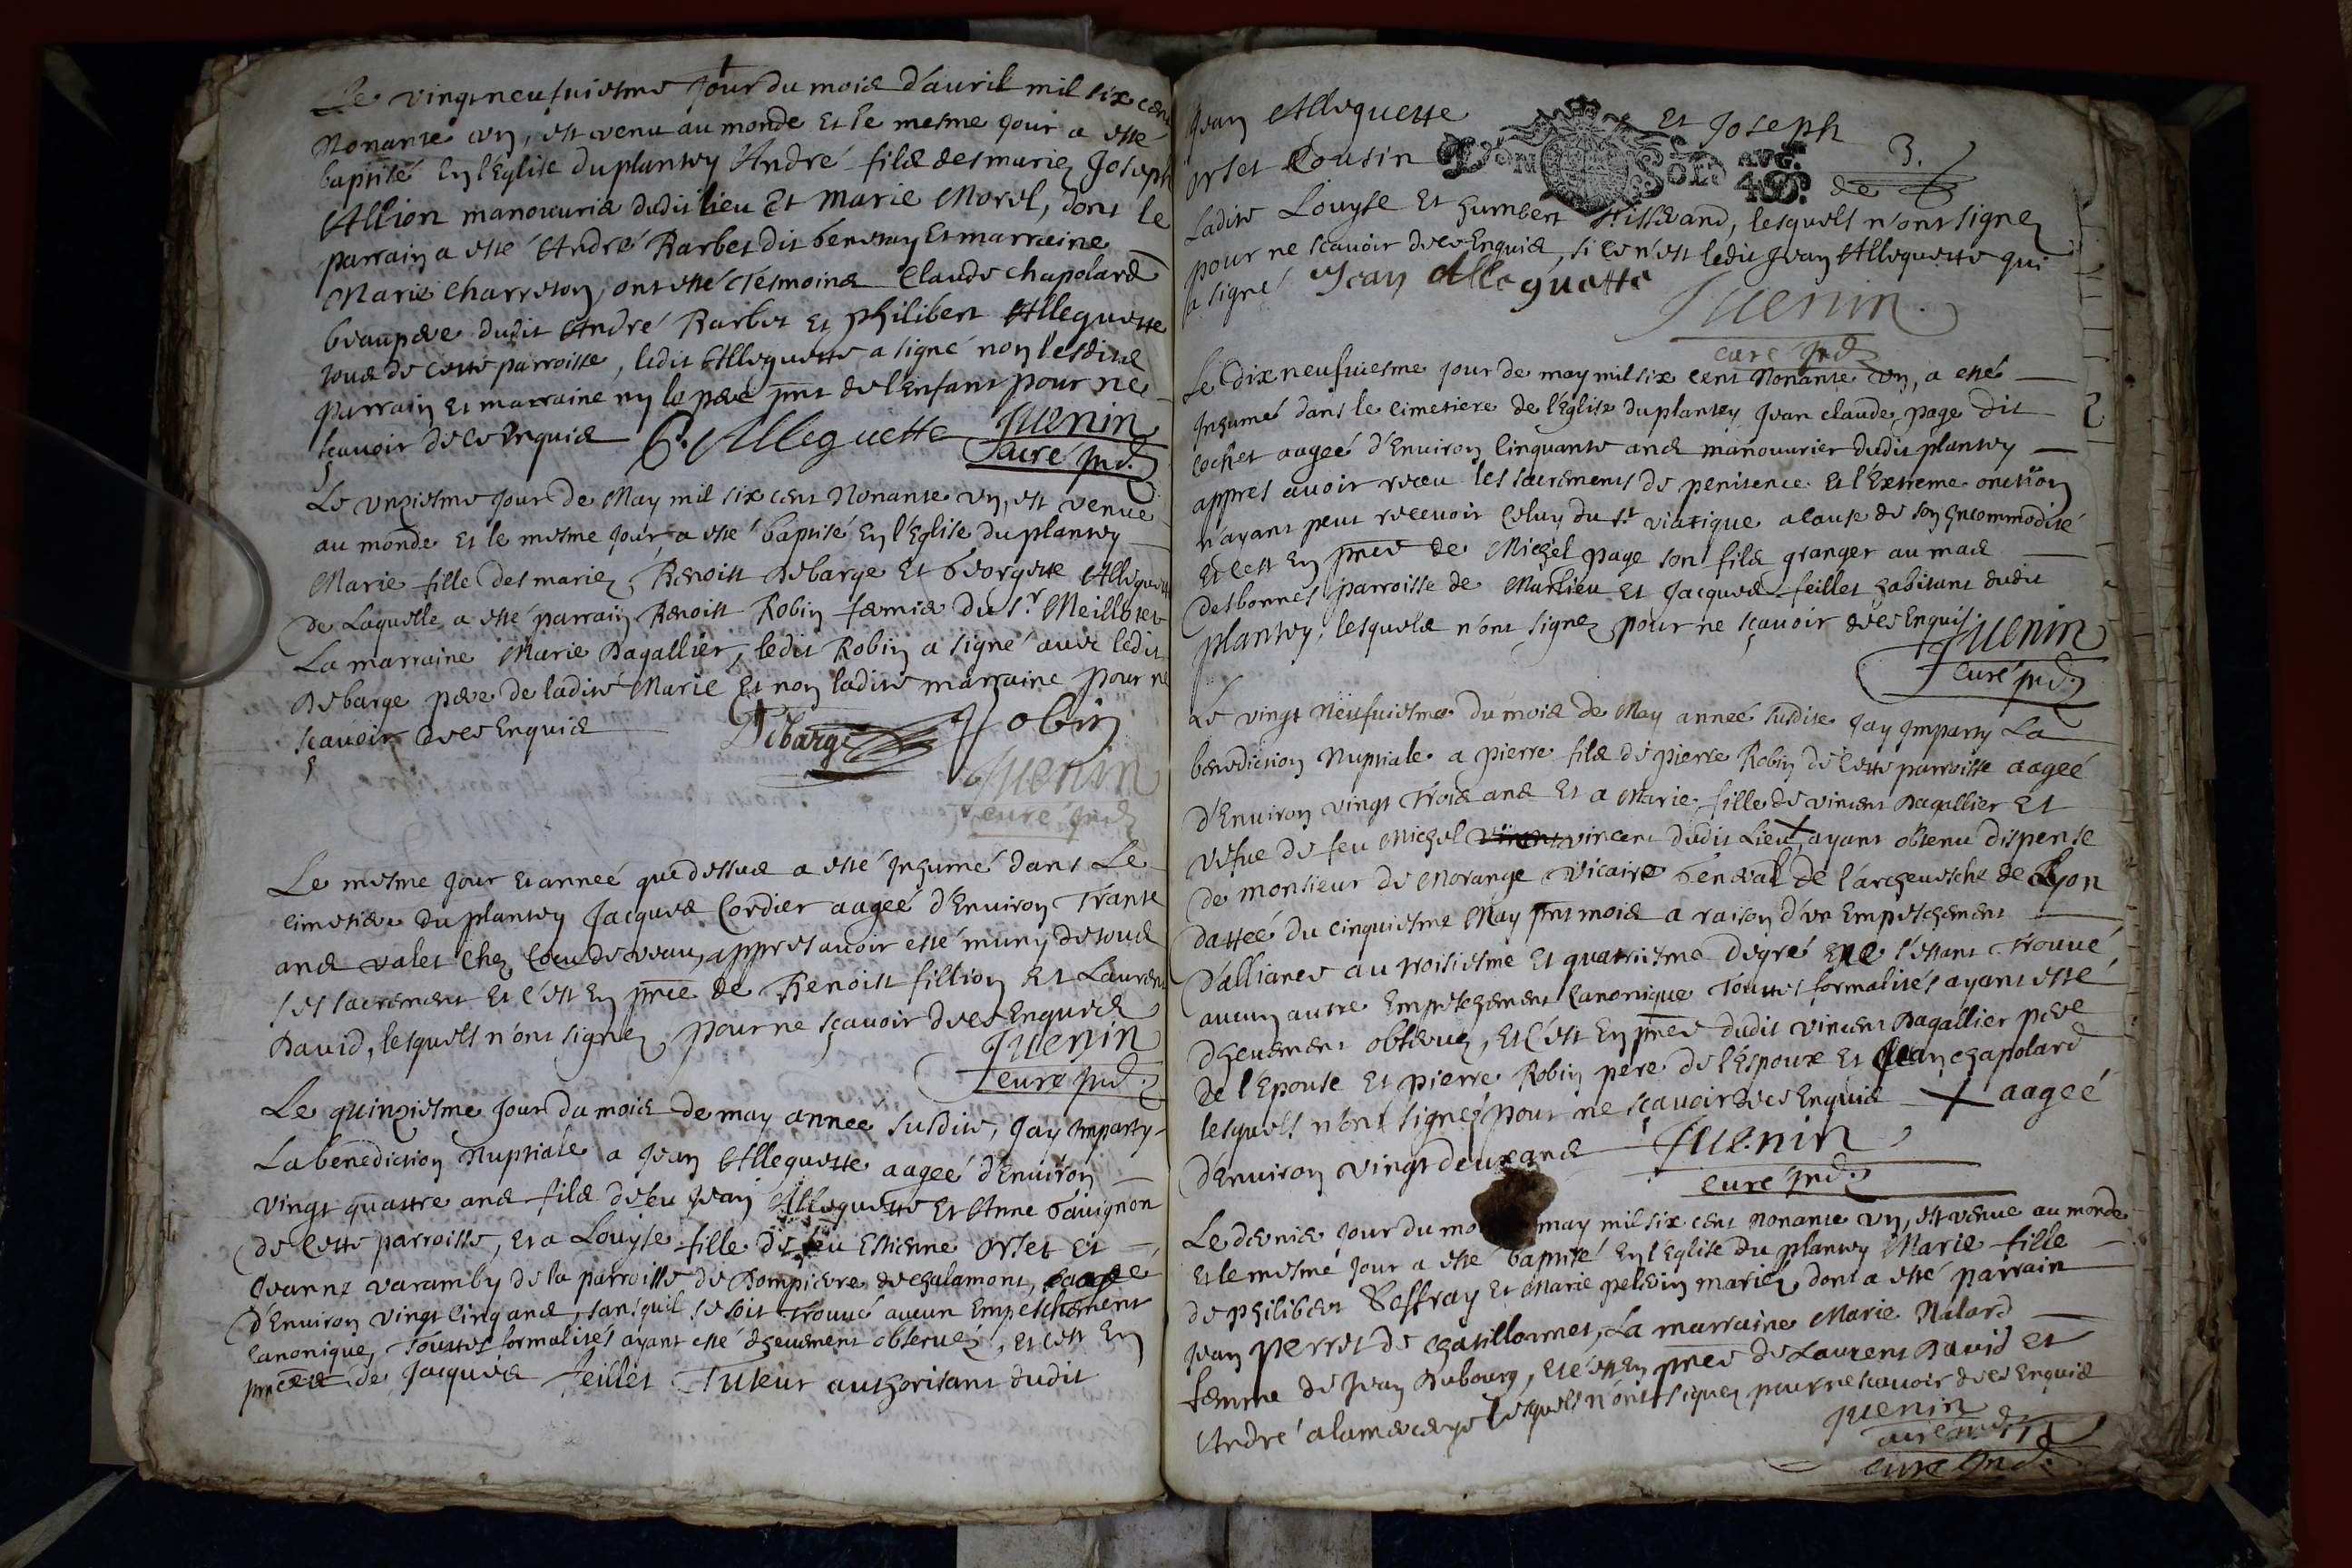 Le vingt neufuiesme jour du mois d'auril mil six cent
Nonante un, est venu au monde et le mesme jour a esté
baptisé en l'Eglise du plantey André fils des mariez Joseph
Allion manouurier dudit lieu et Marie Morel, dont le
parrain a esté André Barbet dit beneray et marraine
Marie Charreton, ont esté tesmoins Claude Chapolard
beaupere dudit André Barbet et Philibert Alleguette
tous de cette parroisse, ledit Alleguette a signé non lesdits
parrain et marraine ny le pere pnt de l'Enfant pour ne
sçauoir de ce enquis P. Alleguette Juenin
curé ind.
Le unziesme jour de May mil six cent Nonante un, est venue
au monde et le mesme jour a esté baptisé en l'Eglise du plantey
Marie fille des mariez Benoist Debarge et Georgette Alleguette
de Laquelle a esté parrain Benoist Robin fermier du Sr Meilloret
La marraine Marie Dagallier, ledit Robin a signé auec ledit
Debarge pere de ladite Marie et non ladite marraine pour ne
scauoir de ce enquis Debarge Robin
Juenin
curé ind.
Le mesme jour et année que dessus a esté Inhumé dans Le
Cimetiere du plantey Jacques Cordier aageé d'Enuiron Trante
ans valet chez Coeudeveau, appres auoir esté muny de tous
ses sacrement et c'est en pnce de Benoist fillion et Laurent
Dauid, lesquels n'ont signez pour ne sçauoir de ce enquis
Juenin
curé ind.
Le quinziesme jour du mois de may anneé susdite, jay Imparty
La benediction Nuptiale a Jean Alleguette aageé d'Enuiron
vingt quattre ans fils de feu Jean Alleguette et Anne Gauignon
de cette parroisse, et a Louyse fille de feu Estienne Orset et
Jeanne varamby de la parroisse de Dompierre de Chalamont, aageé
d'Enuiron vingt cinq ans, sans quil se soit trouué aucun Empeschement
Canonique, Touttes formalités ayant esté dheuement obseruez, et c'est En
pnce de Jacques feillet Tuteur authorisant dudit
Jean Alleguette et Joseph
Orset Cousin de
LYON 2 SOLS AUG. 4 D. 3.
Ladite Louyse et humbert Tisserand, lesquels n'ont signez
pour ne scauoir de ce Enquis, si ce n'est ledit Jean Alleguette qui
a signé Jean Alleguette
Juenin
curé ind.
Le Dix neufuiesme jour de may mil six cent Nonante un, a esté
Inhumé dans le cimetiere de l'Eglise du plantey Jean Claude page dit
cochet aageé d'Enuiron Cinquante ans manouurier dudit plantey
appres auoir receu les sacrements de penitence et l'Extreme onction
n'ayant peut receuoir Celuy du St viatique a cause de son Incommodité
et c'est en pnce de Michel page son fils granger au mas
des bonnes parroisse de Marlieu et Jacques feillet habitant dudit
plantey, lesquels n'ont signez pour ne sçauoir de ce Enquis
Juenin
curé ind.
Le vingt neufuiesme du mois de May anneé susdite jay Imparty La
benediction Nuptiale a pierre fils de pierre Robin de cette parroisse aageé
d'Enuiron vingt Trois ans et a Marie fille de vincent Dagallier et
vefue de feu Michel vincent dudit Lieu + ayant obtenu dispense
de monsieur de Morange vicaire general de l'archeuesché de Lyon
datteé du cinquiesme May pnt mois a raison d'un Empeschement
D'alliance au troisiesme et quatriesme degré et ne s'estant trouué
aucun autre Empeschement Canonique Touttes formalités ayant esté
dheuement obseruez, et c'est en pnce dudit vincent Dagallier pere
de l'Epouse et pierre Robin pere de l'Espoux et Jean Chapolard
lesquels n'ont signez pour ne sçauoir de ce Enquis + aageé
d'Enuiron vingt deux ans Juenin
curé ind.
Le dernier jour du mois may mil six cent nonante un, est venue au monde
et le mesme jour a esté baptisé en l'Eglise du plantey Marie fille
de philibert Beffray et Marie pelloin mariez, dont a esté parrain
Jean perret de Chatillonnet, La marraine Marie Nalard
femme de Jean Dubourg, et c'est en pnce de Laurent Dauid et
André lesquels n'ont signez pour ne scauoir de ce Enquis
Juenin
curé ind.
curé Ind.